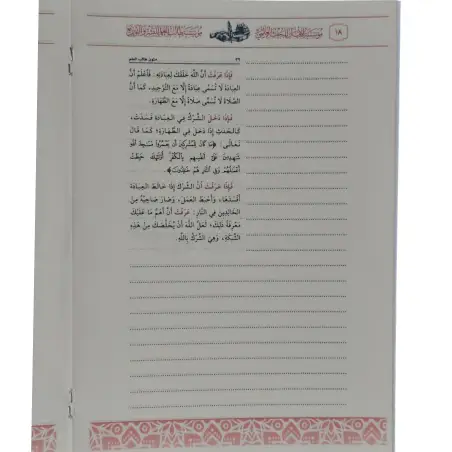 ١٨
٢٦
متون طالب العلم
فَإِذَا عَرَفْتَ أَنَّ اللَّهَ خَلَقَكَ لِعِبَادَتِهِ، فَاعْلَمْ أَنَّ
العِبَادَةَ لَا تُسَمَّى عِبَادَةً إِلَّا مَعَ التَّوْحِيدِ، كَمَا أَنَّ
الصَّلَاةَ لَا تُسَمَّى صَلَاةً إِلَّا مَعَ الطَّهَارَةِ.
فَإِذَا دَخَلَ الشِّرْكُ فِي العِبَادَةِ فَسَدَتْ،
كَالحَدَثِ إِذَا دَخَلَ فِي الطَّهَارَةِ؛ كَمَا قَالَ
تَعَالَى: ﴿مَا كَانَ لِلْمُشْرِكِينَ أَن يَعْمُرُوا مَسَاجِدَ اللَّهِ
شَاهِدِينَ عَلَى أَنفُسِهِم بِالْكُفْرِ أُولَئِكَ حَبِطَتْ
أَعْمَالُهُمْ وَفِي النَّارِ هُمْ خَالِدُونَ﴾.
فَإِذَا عَرَفْتَ أَنَّ الشِّرْكَ إِذَا خَالَطَ العِبَادَةَ
أَفْسَدَهَا، وَأَحْبَطَ العَمَلَ، وَصَارَ صَاحِبُهُ مِنَ
الخَالِدِينَ فِي النَّارِ؛ عَرَفْتَ أَنَّ أَهَمَّ مَا عَلَيْكَ
مَعْرِفَةُ ذَلِكَ؛ لَعَلَّ اللَّهَ أَنْ يُخَلِّصَكَ مِنْ هَذِهِ
الشَّبَكَةِ، وَهِيَ الشِّرْكُ بِاللَّهِ.